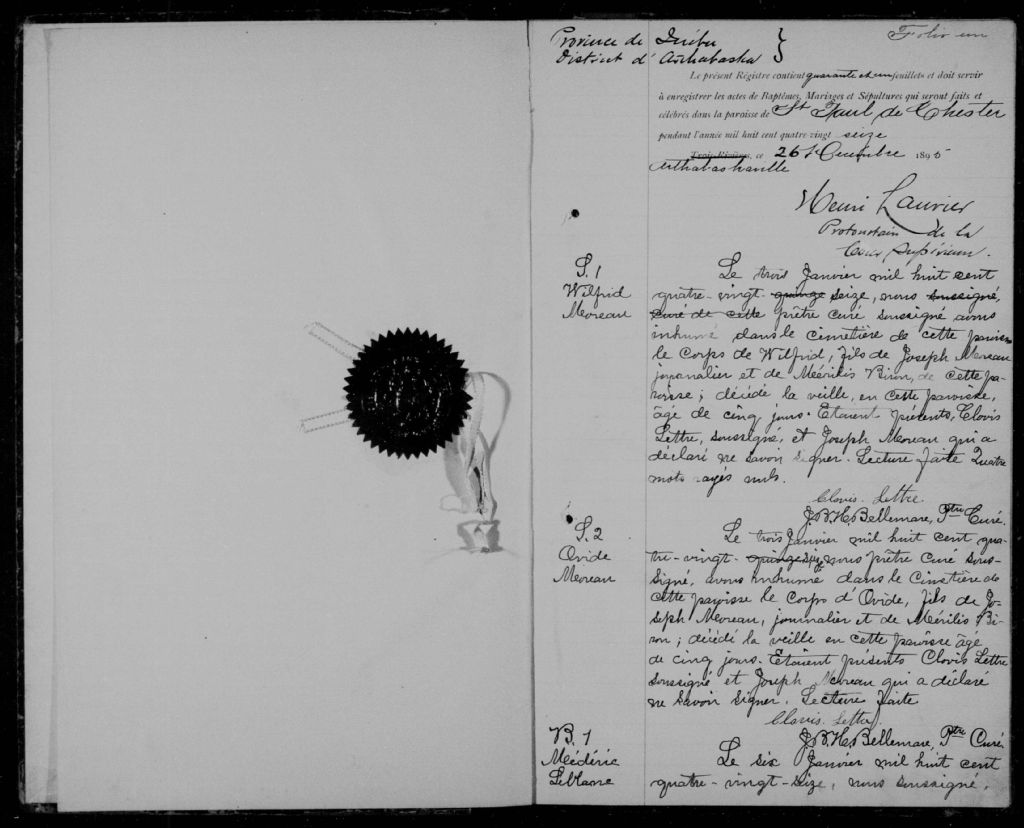 Folio un
Province de Québec }
District d'Arthabaska }
Le présent Régistre contient quarante et un feuillets et doit servir
à enregistrer les actes de Baptêmes, Mariages et Sépultures qui seront faits et
célébrés dans la paroisse de St Paul de Chester
pendant l'année mil huit cent quatre-vingt seize
Trois-Rivières, ce 26 Décembre 1895
Arthabaskaville
Henri Laurier
Protonotaire de la
Cour Supérieure.
S. 1
Wilfrid
Moreau
Le trois Janvier mil huit cent
quatre-vingt-quinze seize, nous soussigné,
curé de cette prêtre curé soussigné avons
inhumé dans le cimetière de cette paroisse
le corps de Wilfrid, fils de Joseph Moreau
journalier et de Méérilis Biron, de cette pa-
roisse; décédé la veille, en cette paroisse,
âgé de cinq jours. Etaient présents, Clovis
Lettre, soussigné, et Joseph Moreau qui a
déclaré ne savoir signer. Lecture faite Quatre
mots rayés nuls.
Clovis. Lettre.
J.B.H. Bellemare, Ptre Curé.
S. 2
Ovide
Moreau
Le trois Janvier mil huit cent qua-
tre-vingt-quinze seize nous prêtre curé sous-
signé, avons inhumé dans le Cimetière de
cette paroisse le corps d'Ovide, fils de Jo-
seph Moreau, journalier et de Mérilis Bi-
ron; décédé la veille en cette paroisse âgé
de cinq jours. Etaient présents Clovis Lettre
soussigné et Joseph Moreau qui a déclaré
ne savoir signer. Lecture faite
Clovis. Lettre.
J.B.H. Bellemare, Ptre Curé.
B. 1
Médéric
Leblanc
Le six Janvier mil huit cent
quatre-vingt-seize, nous soussigné,